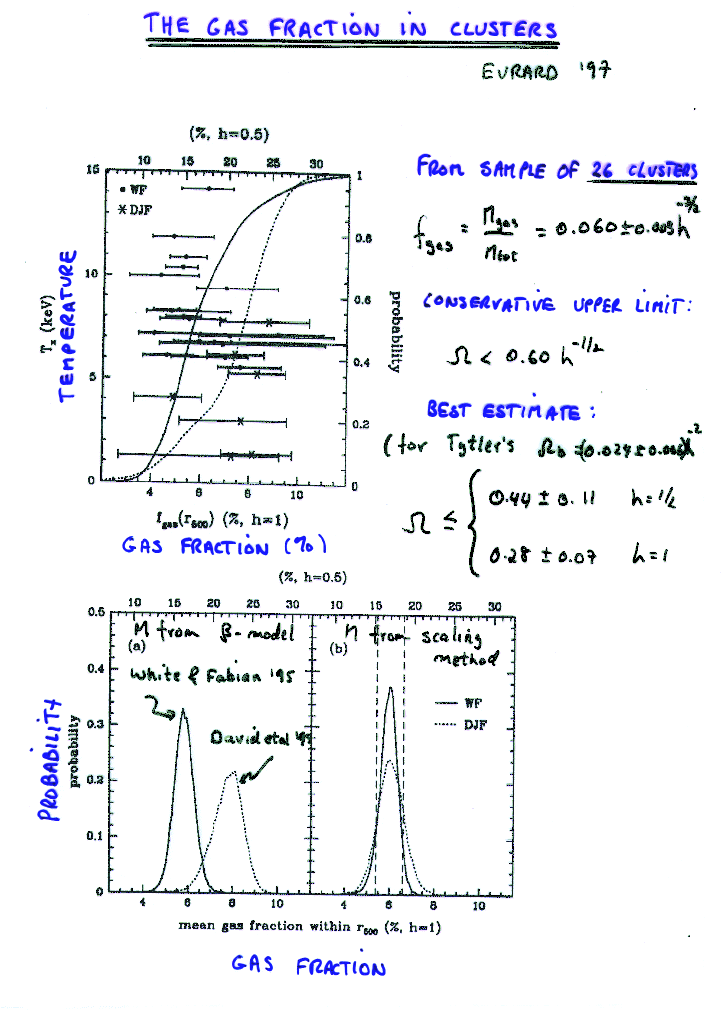 THE GAS FRACTION IN CLUSTERS
EVRARD '97
(%, h=0.5)
10 15 20 25 30
15 10 5 0
WF
DJF
1 0.8 0.6 0.4 0.2 0
T_x (keV)
TEMPERATURE
probability
4 6 8 10
f_gas(r_500) (%, h=1)
GAS FRACTION (%)
FROM SAMPLE OF 26 CLUSTERS
f_gas = M_gas / M_tot = 0.060±0.003 h^-3/2
CONSERVATIVE UPPER LIMIT:
Ω < 0.60 h^-1/2
BEST ESTIMATE:
(for Tytler's Ω_b = (0.024±0.006)h^-2
Ω ≤ { 0.44 ± 0.11 h=1/2
0.28 ± 0.07 h=1
(%, h=0.5)
10 15 20 25 30 10 15 20 25 30
0.5 0.4 0.3 0.2 0.1 0
M from β-model
(a)
White & Fabian '95
David et al
M from scaling method
(b)
WF
DJF
PROBABILITY
probability
4 6 8 10 4 6 8 10
mean gas fraction within r_500 (%, h=1)
GAS FRACTION